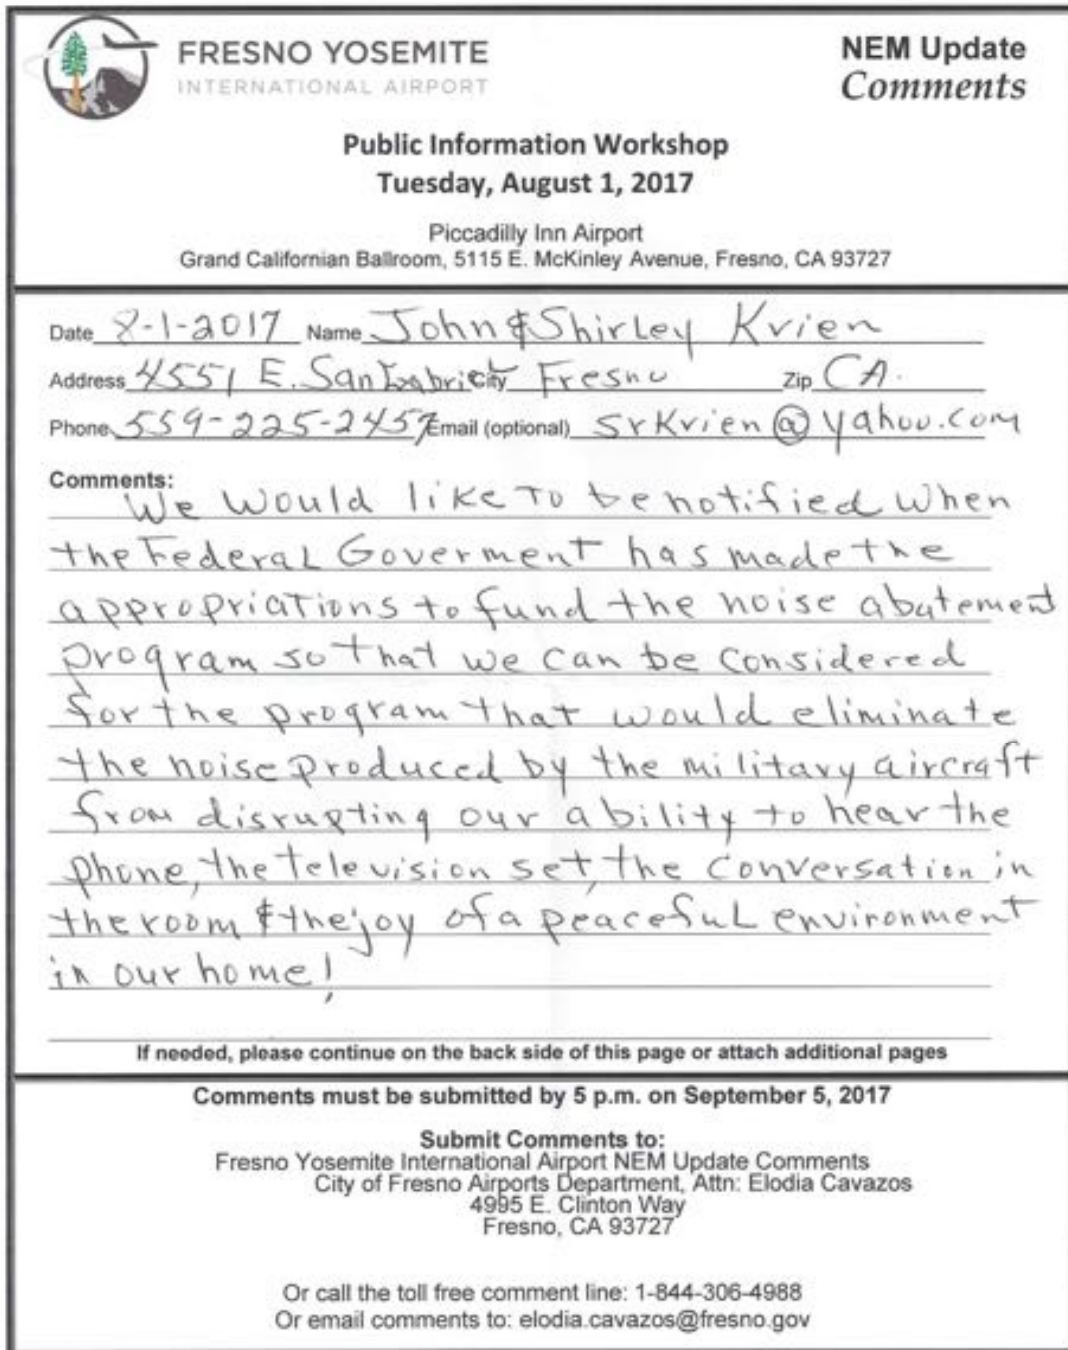 FRESNO YOSEMITE
INTERNATIONAL AIRPORT
NEM Update
Comments
Public Information Workshop
Tuesday, August 1, 2017
Piccadilly Inn Airport
Grand Californian Ballroom, 5115 E. McKinley Avenue, Fresno, CA 93727
Date 8-1-2017 Name John & Shirley Krien
Address 4551 E. San Gabriel City Fresno Zip CA.
Phone 559-225-2457 Email (optional) srkrien@yahoo.com
Comments:
We would like to be notified when
the Federal Goverment has made the
appropriations to fund the noise abatement
program so that we can be considered
for the program that would eliminate
the noise produced by the military aircraft
from disrupting our ability to hear the
phone, the television set, the conversation in
the room & the joy of a peaceful environment
in our home!
If needed, please continue on the back side of this page or attach additional pages
Comments must be submitted by 5 p.m. on September 5, 2017
Submit Comments to:
Fresno Yosemite International Airport NEM Update Comments
City of Fresno Airports Department, Attn: Elodia Cavazos
4995 E. Clinton Way
Fresno, CA 93727
Or call the toll free comment line: 1-844-306-4988
Or email comments to: elodia.cavazos@fresno.gov